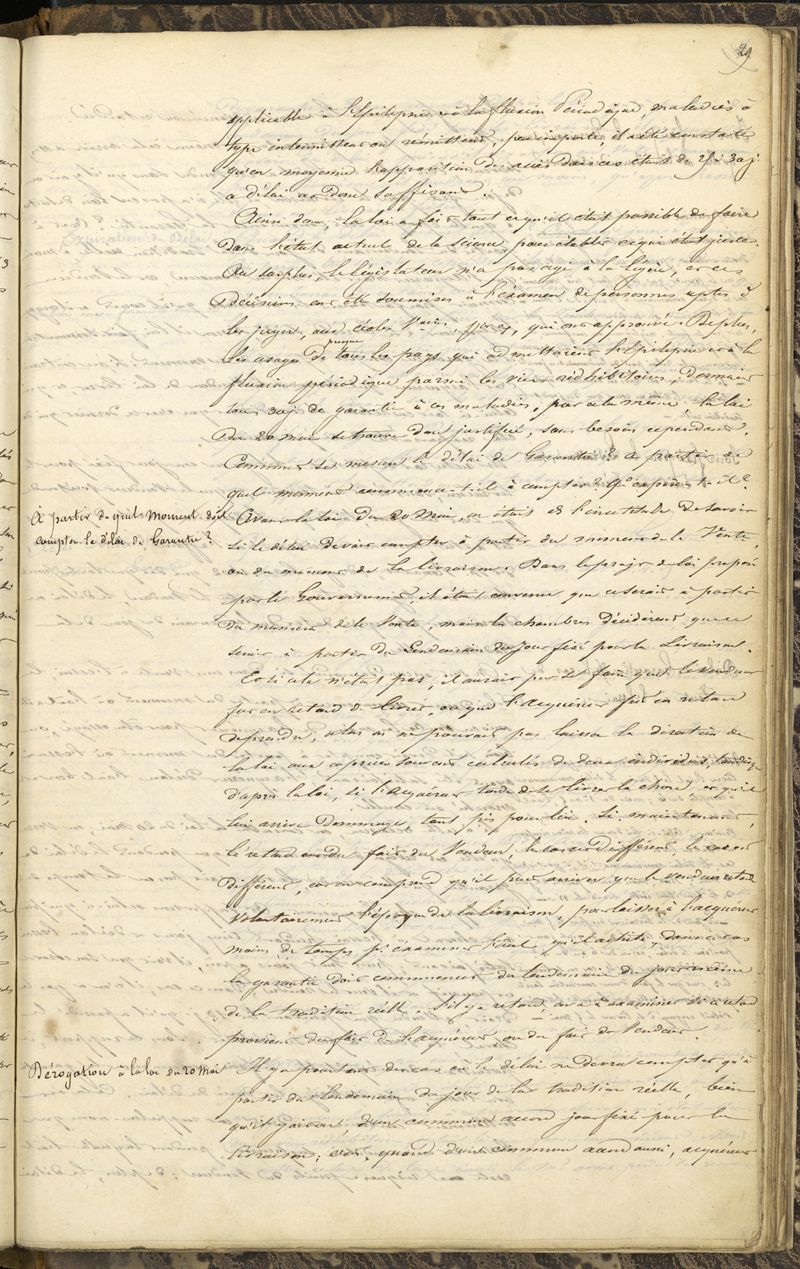 29
applicable à l'Epilepsie et à la fluxion Périodique, maladies à
type intermittent ou rémittent, peu importe, il a été constaté
qu'en moyenne l'apparition des accès dans ces était de 25 à 30 j
a délai donc suffisant.
Ainsi donc, la loi a fait tout ce qu'il était possible de faire
dans l'état actuel de la science, pour établir ce qui était juste.
Au surplus, le législateur n'a pas agi à la légère, et ces
Décisions ont été soumises à l'examen de personnes aptes à
les juger, aux écoles Vres, qui ont approuvé. De plus,
les usages de presque tous les pays qui admettaient l'Epilepsie et la
fluxion périodique parmi les vices rédhibitoires, donnaient
tous 30 j. de garantie à ces maladies, par cela même, la loi
du 20 mai se trouve donc justifiée, sans besoin cependant.
Comment se mesure le délai de Garantie et à partir de
quel moment commence-t-il à compter? Qd expire-t-il?
À partir de quel moment doit
compter le délai de Garantie?
Avant la loi du 20 Mai, on était dans l'incertitude de savoir
si le délai devait compter à partir du moment de la Vente,
ou du moment de la livraison. Dans le projet de loi proposé
par le Gouvernement, il était convenu que ce serait à partir
du moment de la Vente, mais les chambres décidèrent que ce
serait à partir du Lendemain du jour fixé pour la Livraison.
Et si cela n'était pas, il aurait pu se faire que le vendeur
fut en retard de livrer, ou que l'acquéreur fut en retard
de prendre, alors on ne pouvait pas laisser la direction de
la loi aux caprices souvent calculés de deux individus, tandis que
d'après la loi, si l'acquéreur tarde de se livrer la chose, et qu'il
lui arrive Dommage, tant pis pour lui. Si maintenant,
le retard est du fait du Vendeur, le cas est différent, le cas est
différent, car on comprend qu'il peut arriver que le vendeur retarde
volontairement l'époque de la livraison, pour laisser à l'acquéreur
moins de temps pr examiner l'animal qu'il achète, dans ce cas
la garantie doit commencer du lendemain du jour même
de la tradition réelle. S'il y a retard, on a à examiner si ce retard
provient du fait de l'acquéreur ou du fait du Vendeur.
Dérogation à la loi du 20 Mai
Il y a pourtant des cas où le délai ne devra compter qu'à
partir du lendemain du jour de la tradition réelle, bien
qu'il y ait eu, d'un commun accord jour fixé pour la
livraison; c'est, quand d'un commun accord aussi, acquéreur